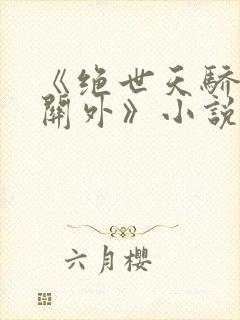 《绝世天骄
關外》小說
六月櫻